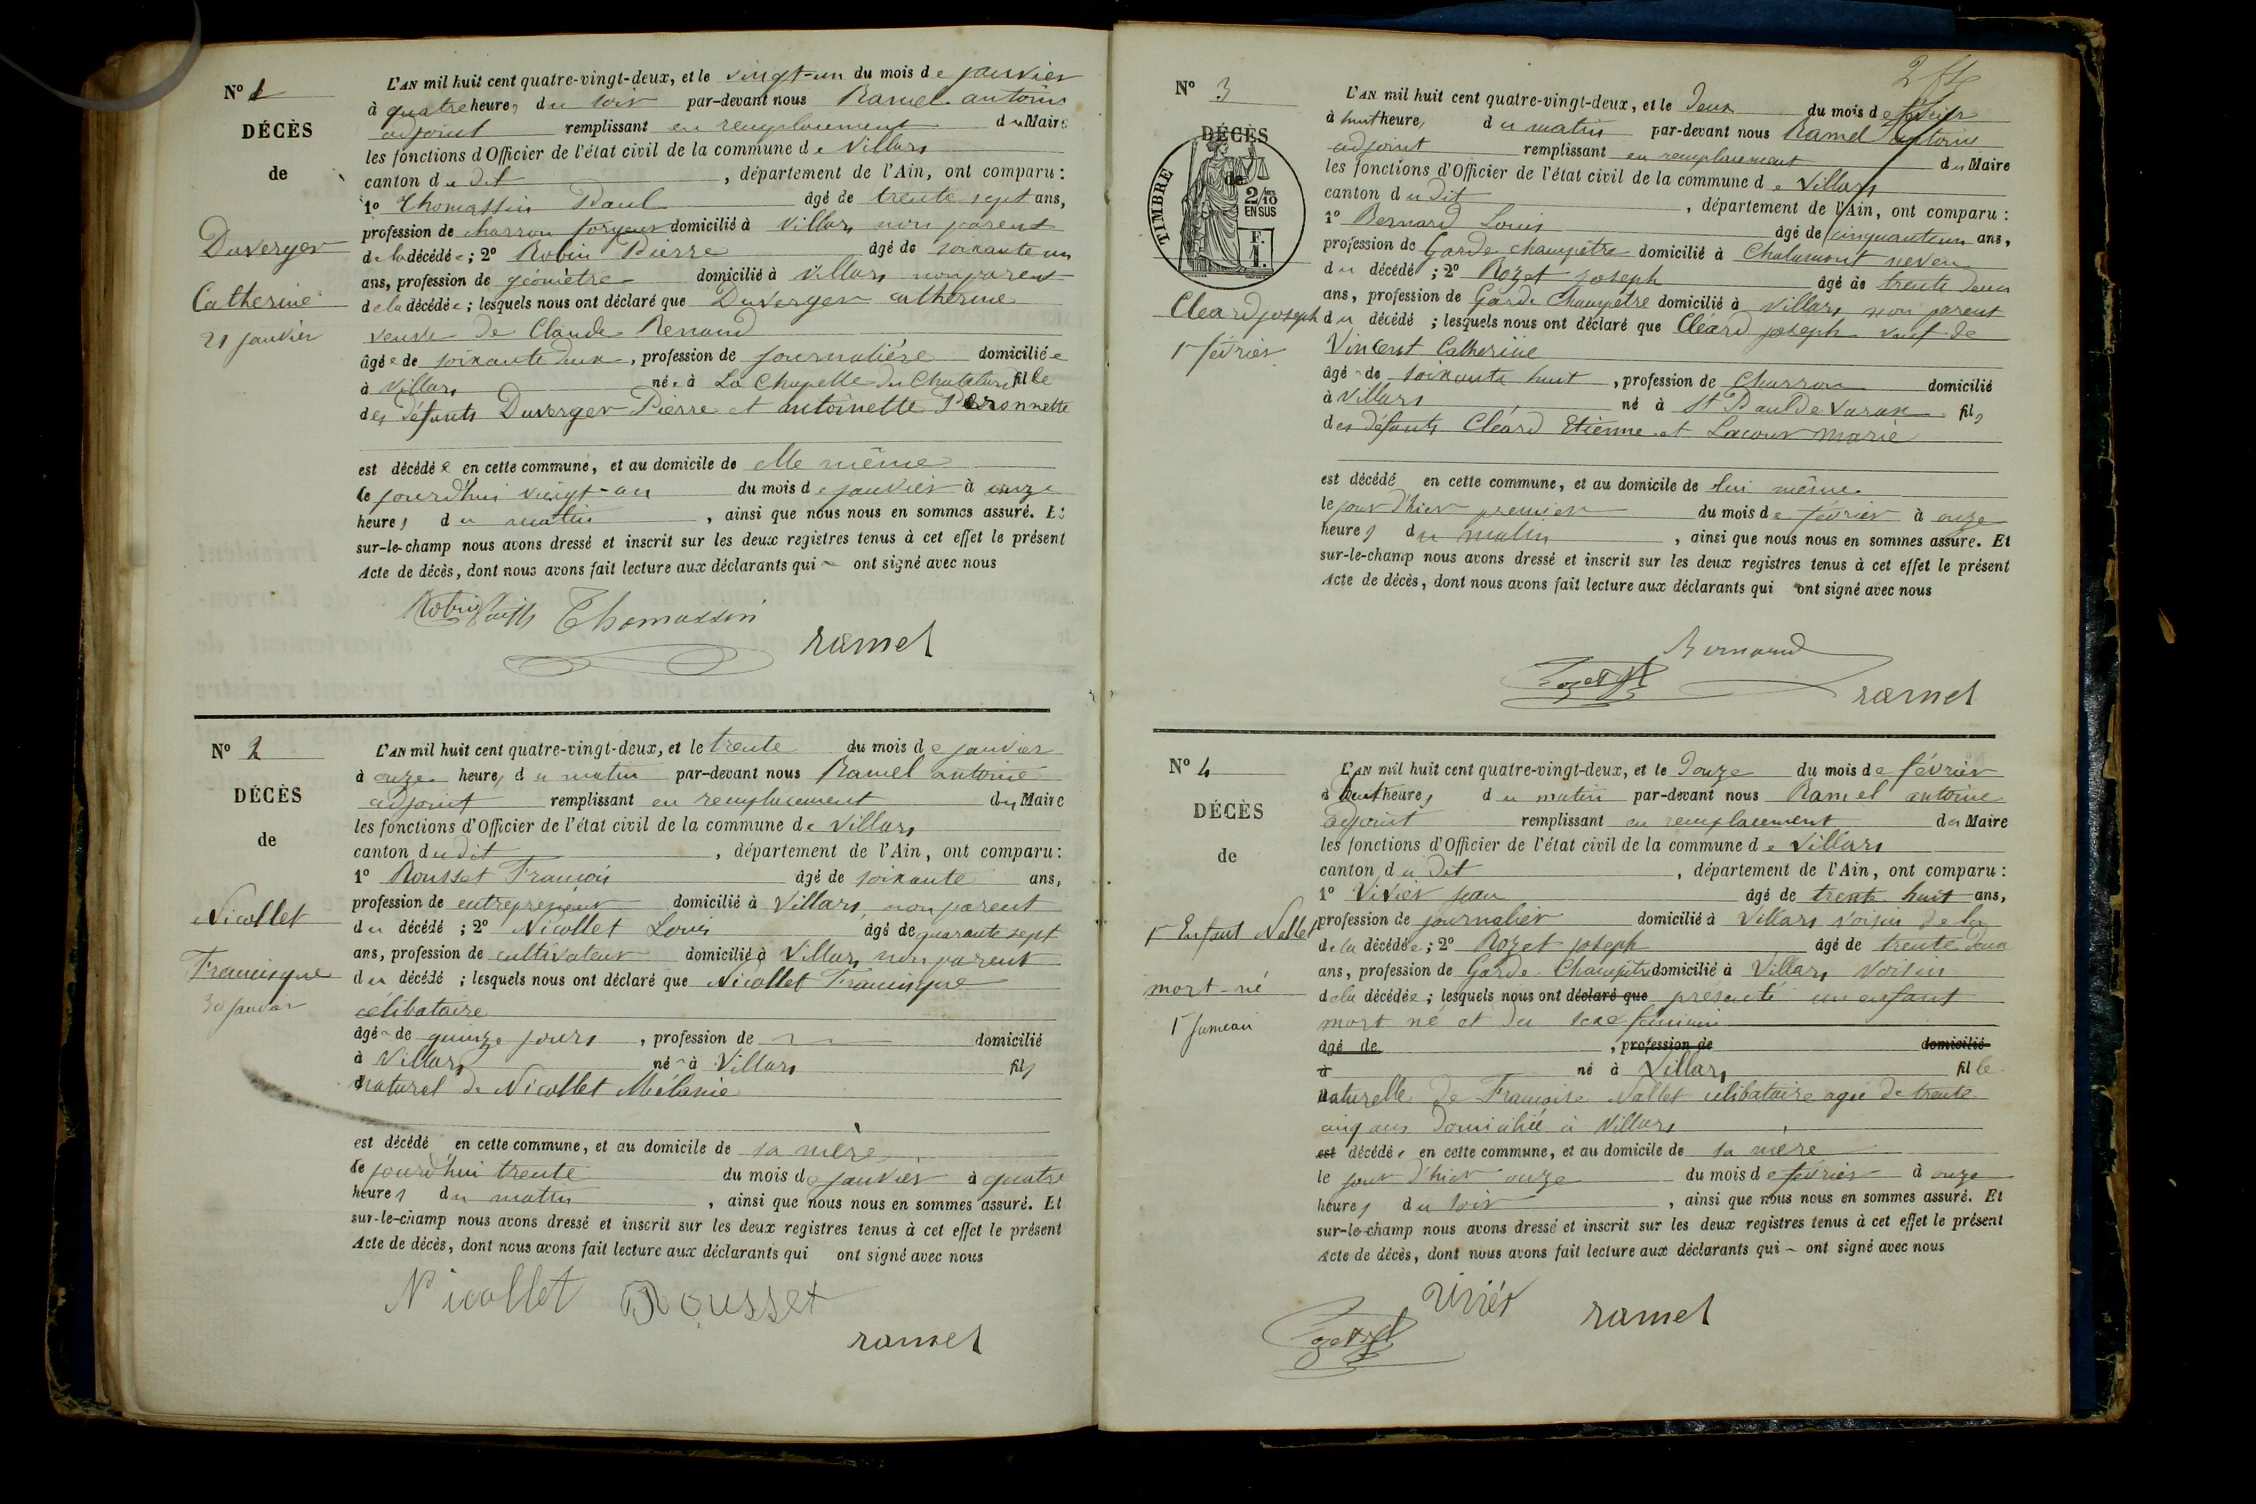 N° 1
DÉCÈS
de
Duverger
Catherine
21 janvier
L'AN mil huit cent quatre-vingt-deux, et le vingt-un du mois de janvier
à quatre heures du soir par-devant nous Ramel antoine
adjoint remplissant en remplacement du Maire
les fonctions d'Officier de l'état civil de la commune de Villars
canton du dit, département de l'Ain, ont comparu :
1° Thomassin Paul âgé de trente sept ans,
profession de charron forgeur domicilié à Villars non parent
de la décédée ; 2° Robin Pierre âgé de soixante un
ans, profession de géomètre domicilié à Villars non parent
de la décédée ; lesquels nous ont déclaré que Duverger catherine
veuve de Claude Renaud
âgée de soixante deux, profession de journalière domiciliée
à Villars née à La Chapelle du Chatelard fille
des défunts Duverger Pierre et antoinette Peronnette
est décédée en cette commune, et au domicile de elle même
le jourd'hui vingt-un du mois de janvier à onze
heures du matin, ainsi que nous nous en sommes assuré. Et
sur-le-champ nous avons dressé et inscrit sur les deux registres tenus à cet effet le présent
Acte de décès, dont nous avons fait lecture aux déclarants qui ont signé avec nous
Robin Thomassin
ramel
N° 2
DÉCÈS
de
Nicollet
Francisque
30 janvier
L'AN mil huit cent quatre-vingt-deux, et le trente du mois de janvier
à onze heures du matin par-devant nous Ramel antoine
adjoint remplissant en remplacement du Maire
les fonctions d'Officier de l'état civil de la commune de Villars
canton du dit, département de l'Ain, ont comparu :
1° Rousset François âgé de soixante ans,
profession de entrepreneur domicilié à Villars, non parent
du décédé ; 2° Nicollet Louis âgé de quarante sept
ans, profession de cultivateur domicilié à Villars non parent
du décédé ; lesquels nous ont déclaré que Nicollet Francisque
célibataire
âgé de quinze jours, profession de domicilié
à Villars né à Villars fils
naturel de Nicollet Mélanie
est décédé en cette commune, et au domicile de sa mère
le jourd'hui trente du mois de janvier à quatre
heures du matin, ainsi que nous nous en sommes assuré. Et
sur-le-champ nous avons dressé et inscrit sur les deux registres tenus à cet effet le présent
Acte de décès, dont nous avons fait lecture aux déclarants qui ont signé avec nous
Nicollet Rousset
ramel
2
N° 3
DÉCÈS
de
TIMBRE
2/10
EN SUS
F.
1.
Cléard joseph
1r février
L'AN mil huit cent quatre-vingt-deux, et le deux du mois de février
à huit heures du matin par-devant nous Ramel antoine
adjoint remplissant en remplacement du Maire
les fonctions d'Officier de l'état civil de la commune de Villars
canton du dit, département de l'Ain, ont comparu :
1° Bernard Louis âgé de cinquante un ans,
profession de Garde champêtre domicilié à Chalamont neveu
du décédé ; 2° Rozet joseph âgé de trente deux
ans, profession de Garde Champêtre domicilié à Villars non parent
du décédé ; lesquels nous ont déclaré que Cléard joseph veuf de
Vincent Catherine
âgé de soixante huit, profession de charron domicilié
à Villars né à St Paul de Varax fils
des défunts Cléard Etienne et Lacour marie
est décédé en cette commune, et au domicile de lui même
le jour d'hier premier du mois de février à onze
heures du matin, ainsi que nous nous en sommes assuré. Et
sur-le-champ nous avons dressé et inscrit sur les deux registres tenus à cet effet le présent
Acte de décès, dont nous avons fait lecture aux déclarants qui ont signé avec nous
Bernard
ramel
N° 4
DÉCÈS
de
1r Enfant Nallet
mort-né
1r jumeau
L'AN mil huit cent quatre-vingt-deux, et le douze du mois de février
à huit heures du matin par-devant nous Ramel antoine
adjoint remplissant en remplacement du Maire
les fonctions d'Officier de l'état civil de la commune de Villars
canton du dit, département de l'Ain, ont comparu :
1° Vivier jean âgé de trente huit ans,
profession de journalier domicilié à Villars voisin de la
de la décédée ; 2° Rozet joseph âgé de trente deux
ans, profession de Garde Champêtre domicilié à Villars voisin
de la décédée ; lesquels nous ont déclaré que présenté un enfant
mort né et du sexe féminin
âgé de , profession de domicilié
à né à Villars fille
naturelle de Françoise Nallet célibataire agée de trente
cinq ans domiciliée à Villars
est décédée en cette commune, et au domicile de sa mère
le jour d'hier onze du mois de février à onze
heures du soir, ainsi que nous nous en sommes assuré. Et
sur-le-champ nous avons dressé et inscrit sur les deux registres tenus à cet effet le présent
Acte de décès, dont nous avons fait lecture aux déclarants qui ont signé avec nous
ramel